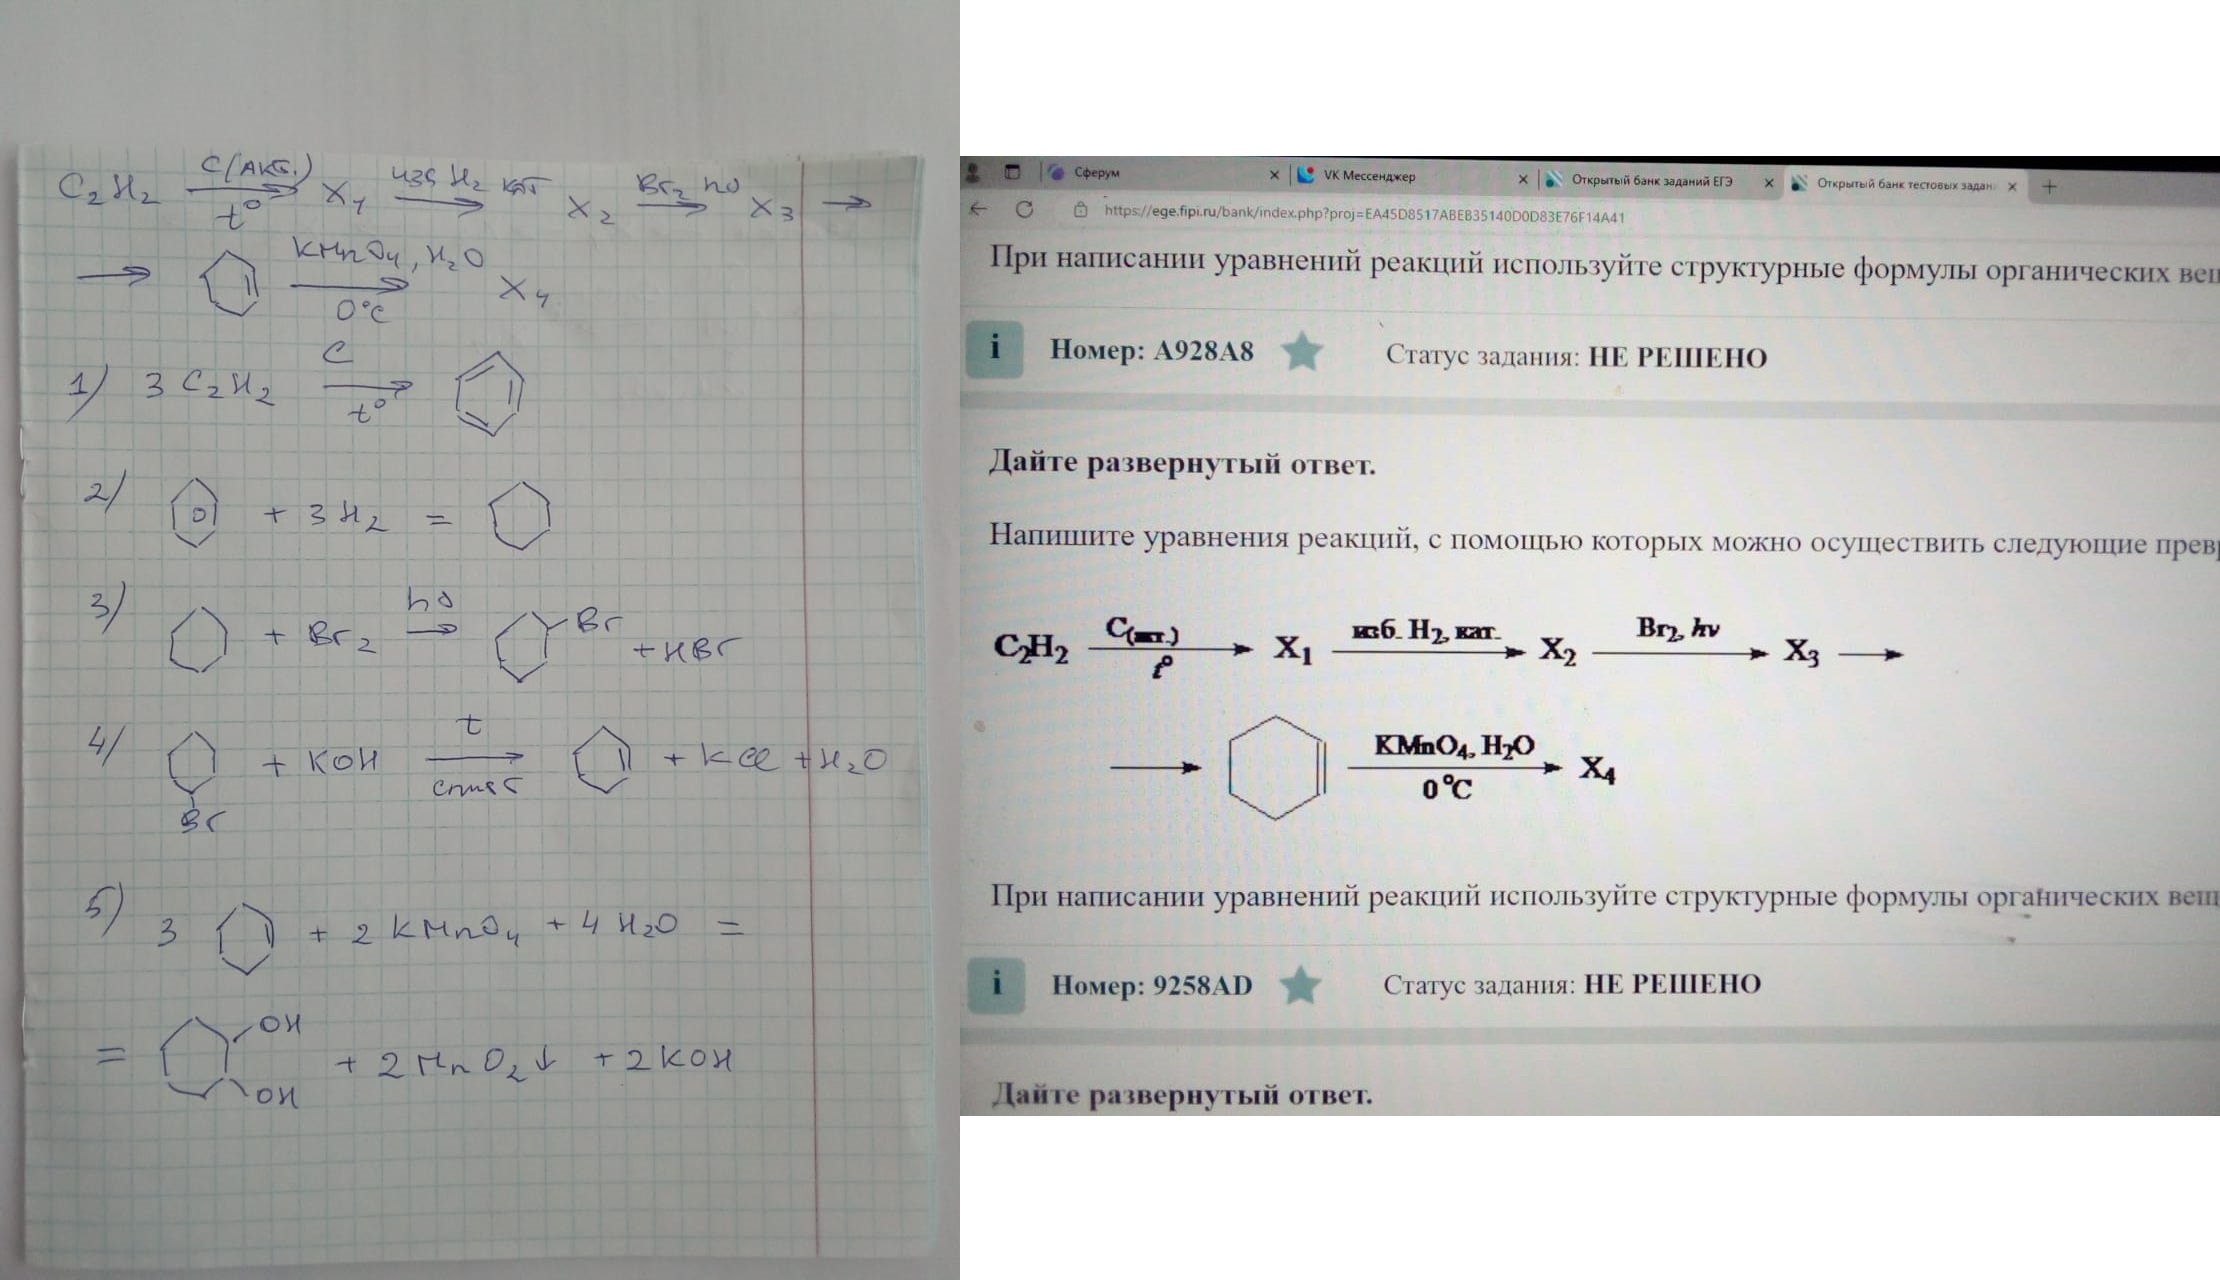 C₂H₂ C(АКТ.) t° X₁ изб H₂ кат X₂ Br₂ hν X₃ →
→ KMnO₄, H₂O 0°C X₄
1) 3 C₂H₂ C t°
2) + 3H₂ =
3) + Br₂ hν Br + HBr
4) Br + KOH t спирт + KCl + H₂O
5) 3 + 2 KMnO₄ + 4 H₂O =
= OH OH + 2 MnO₂↓ + 2 KOH
Сферум × VK Мессенджер × Открытый банк заданий ЕГЭ × Открытый банк тестовых задан × +
https://ege.fipi.ru/bank/index.php?proj=EA45D8517ABEB35140D0D83E76F14A41
При написании уравнений реакций используйте структурные формулы органических вещ
i Номер: A928A8 Статус задания: НЕ РЕШЕНО
Дайте развернутый ответ.
Напишите уравнения реакций, с помощью которых можно осуществить следующие превр
C₂H₂ C(акт.) t° X₁ изб. H₂, кат. X₂ Br₂, hν X₃ →
→ KMnO₄, H₂O 0 °C X₄
При написании уравнений реакций используйте структурные формулы органических вещ
i Номер: 9258AD Статус задания: НЕ РЕШЕНО
Дайте развернутый ответ.